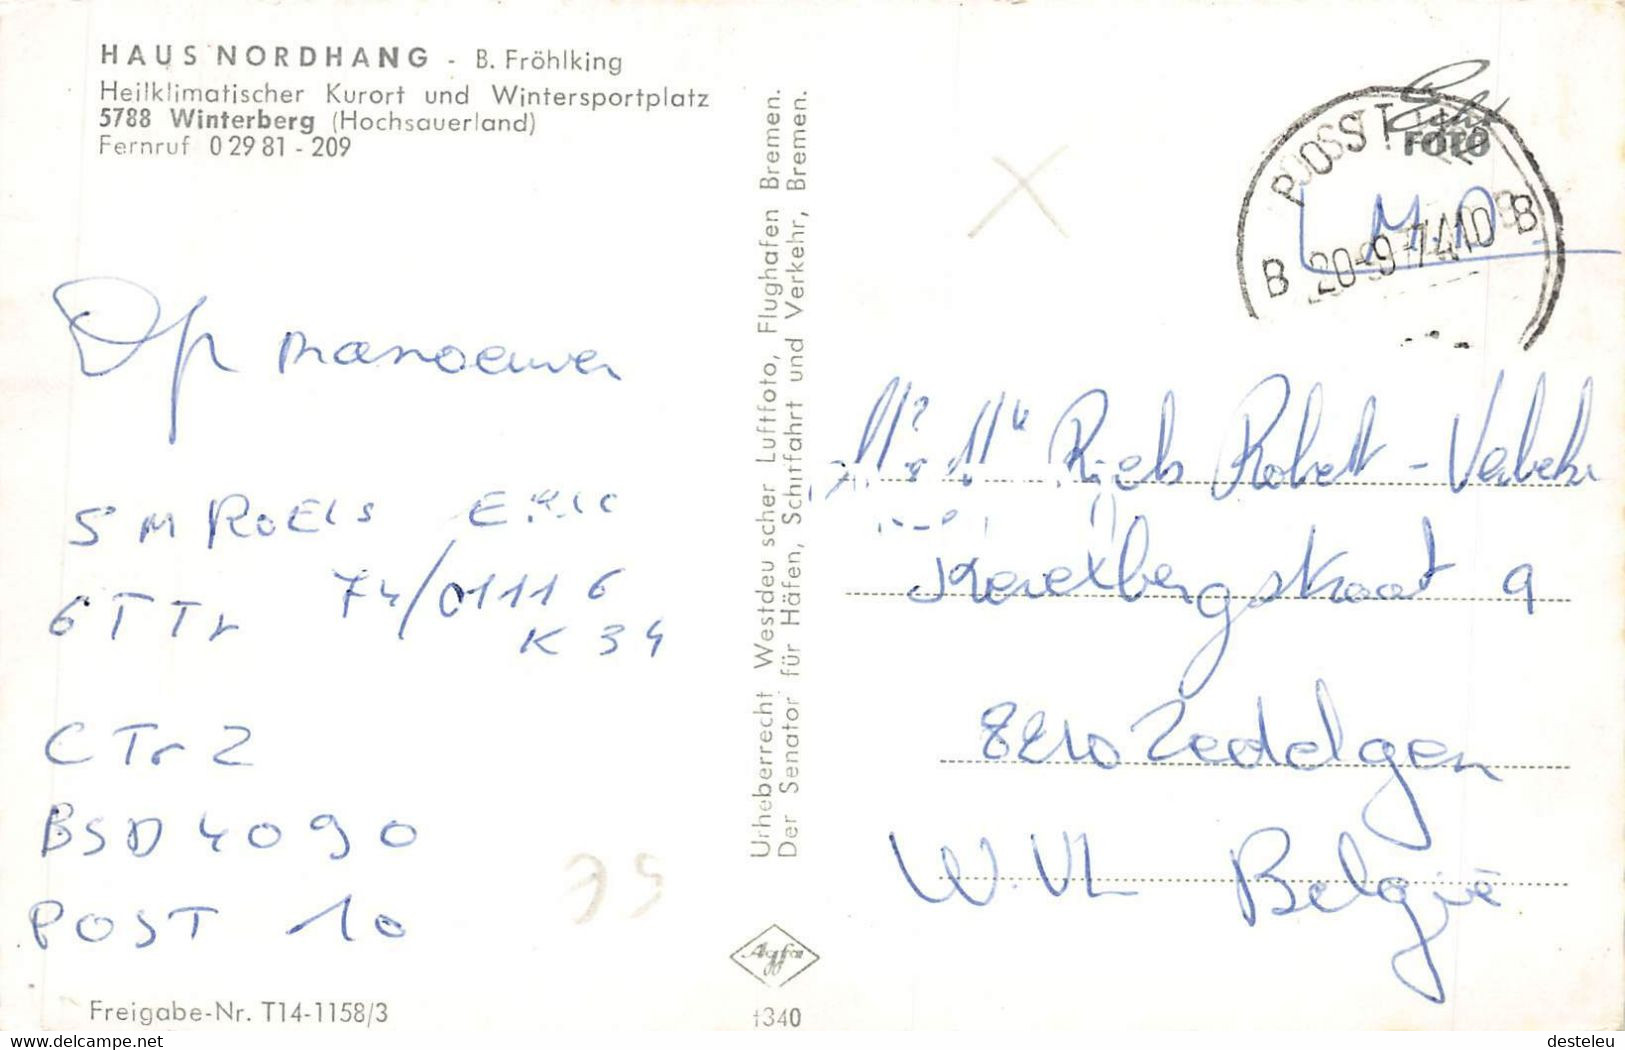 HAUS NORDHANG - B. Fröhlking
Heilklimatischer Kurort und Wintersportplatz
5788 Winterberg (Hochsauerland)
Fernruf 0 29 81 - 209
Op manoeuver
SM ROELS Eric
6 TTr 74/01116
K 34
CTr 2
BSD 4090
POST 10
Freigabe-Nr. T14-1158/3
Urheberrecht Westdeutscher Luftfoto, Flughafen Bremen.
Der Senator für Häfen, Schiffahrt und Verkehr, Bremen.
Agfa
t340
Echt
FOTO
POST
B 20-9-74 10 B
M.P
Robert - Verbeke
9
8210 Zedelgem
W.VL België
75
Delcampe.net
desteleu